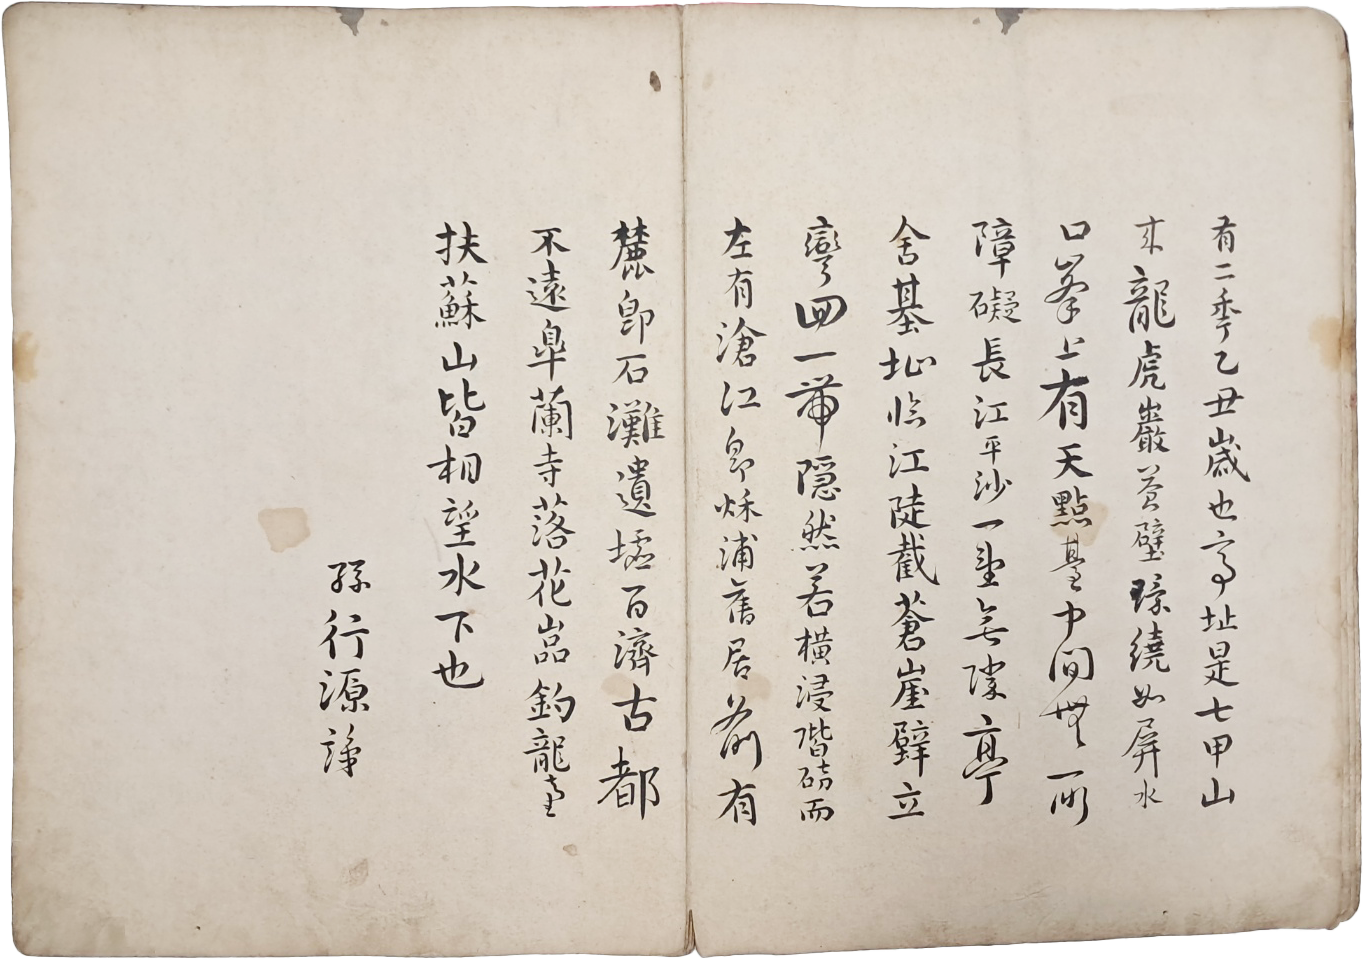 有二季乙丑歲也亭址是七甲山
來龍虎巖蒼壁環繞如屏水
口峯上有天點臺中間無一所
障礙長江平沙一望無際亭
舍基址臨江陡截蒼崖壁立
彎回一帶隱然若橫浸階砌而
左有滄江卽秌浦舊居前有
麓卽石灘遺墟百濟古都
不遠臯蘭寺落花嵓釣龍臺
扶蘇山皆相望水下也
孫行源諍